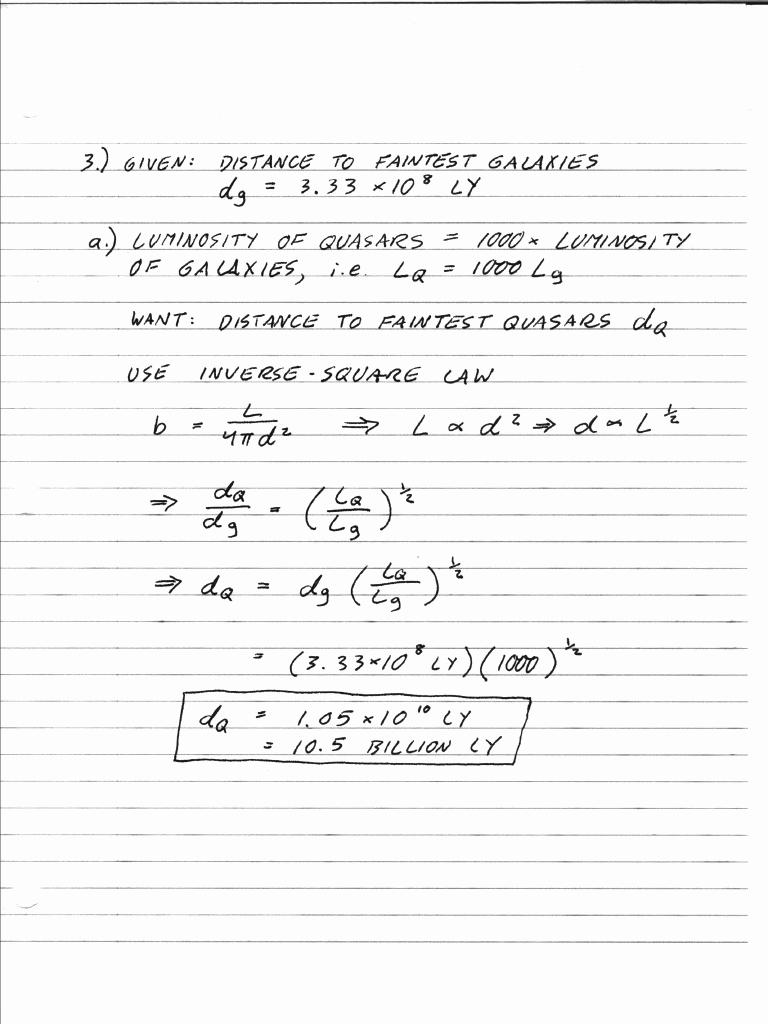 3.) GIVEN: DISTANCE TO FAINTEST GALAXIES
dg = 3.33 × 10⁸ LY
a.) LUMINOSITY OF QUASARS = 1000 × LUMINOSITY
OF GALAXIES, i.e. L_Q = 1000 L_g
WANT: DISTANCE TO FAINTEST QUASARS d_Q
USE INVERSE-SQUARE LAW
b = L / 4πd² ⇒ L ∝ d² ⇒ d ∝ L^½
⇒ d_Q / d_g = (L_Q / L_g)^½
⇒ d_Q = d_g (L_Q / L_g)^½
= (3.33×10⁸ LY)(1000)^½
d_Q = 1.05 × 10¹⁰ LY
= 10.5 BILLION LY